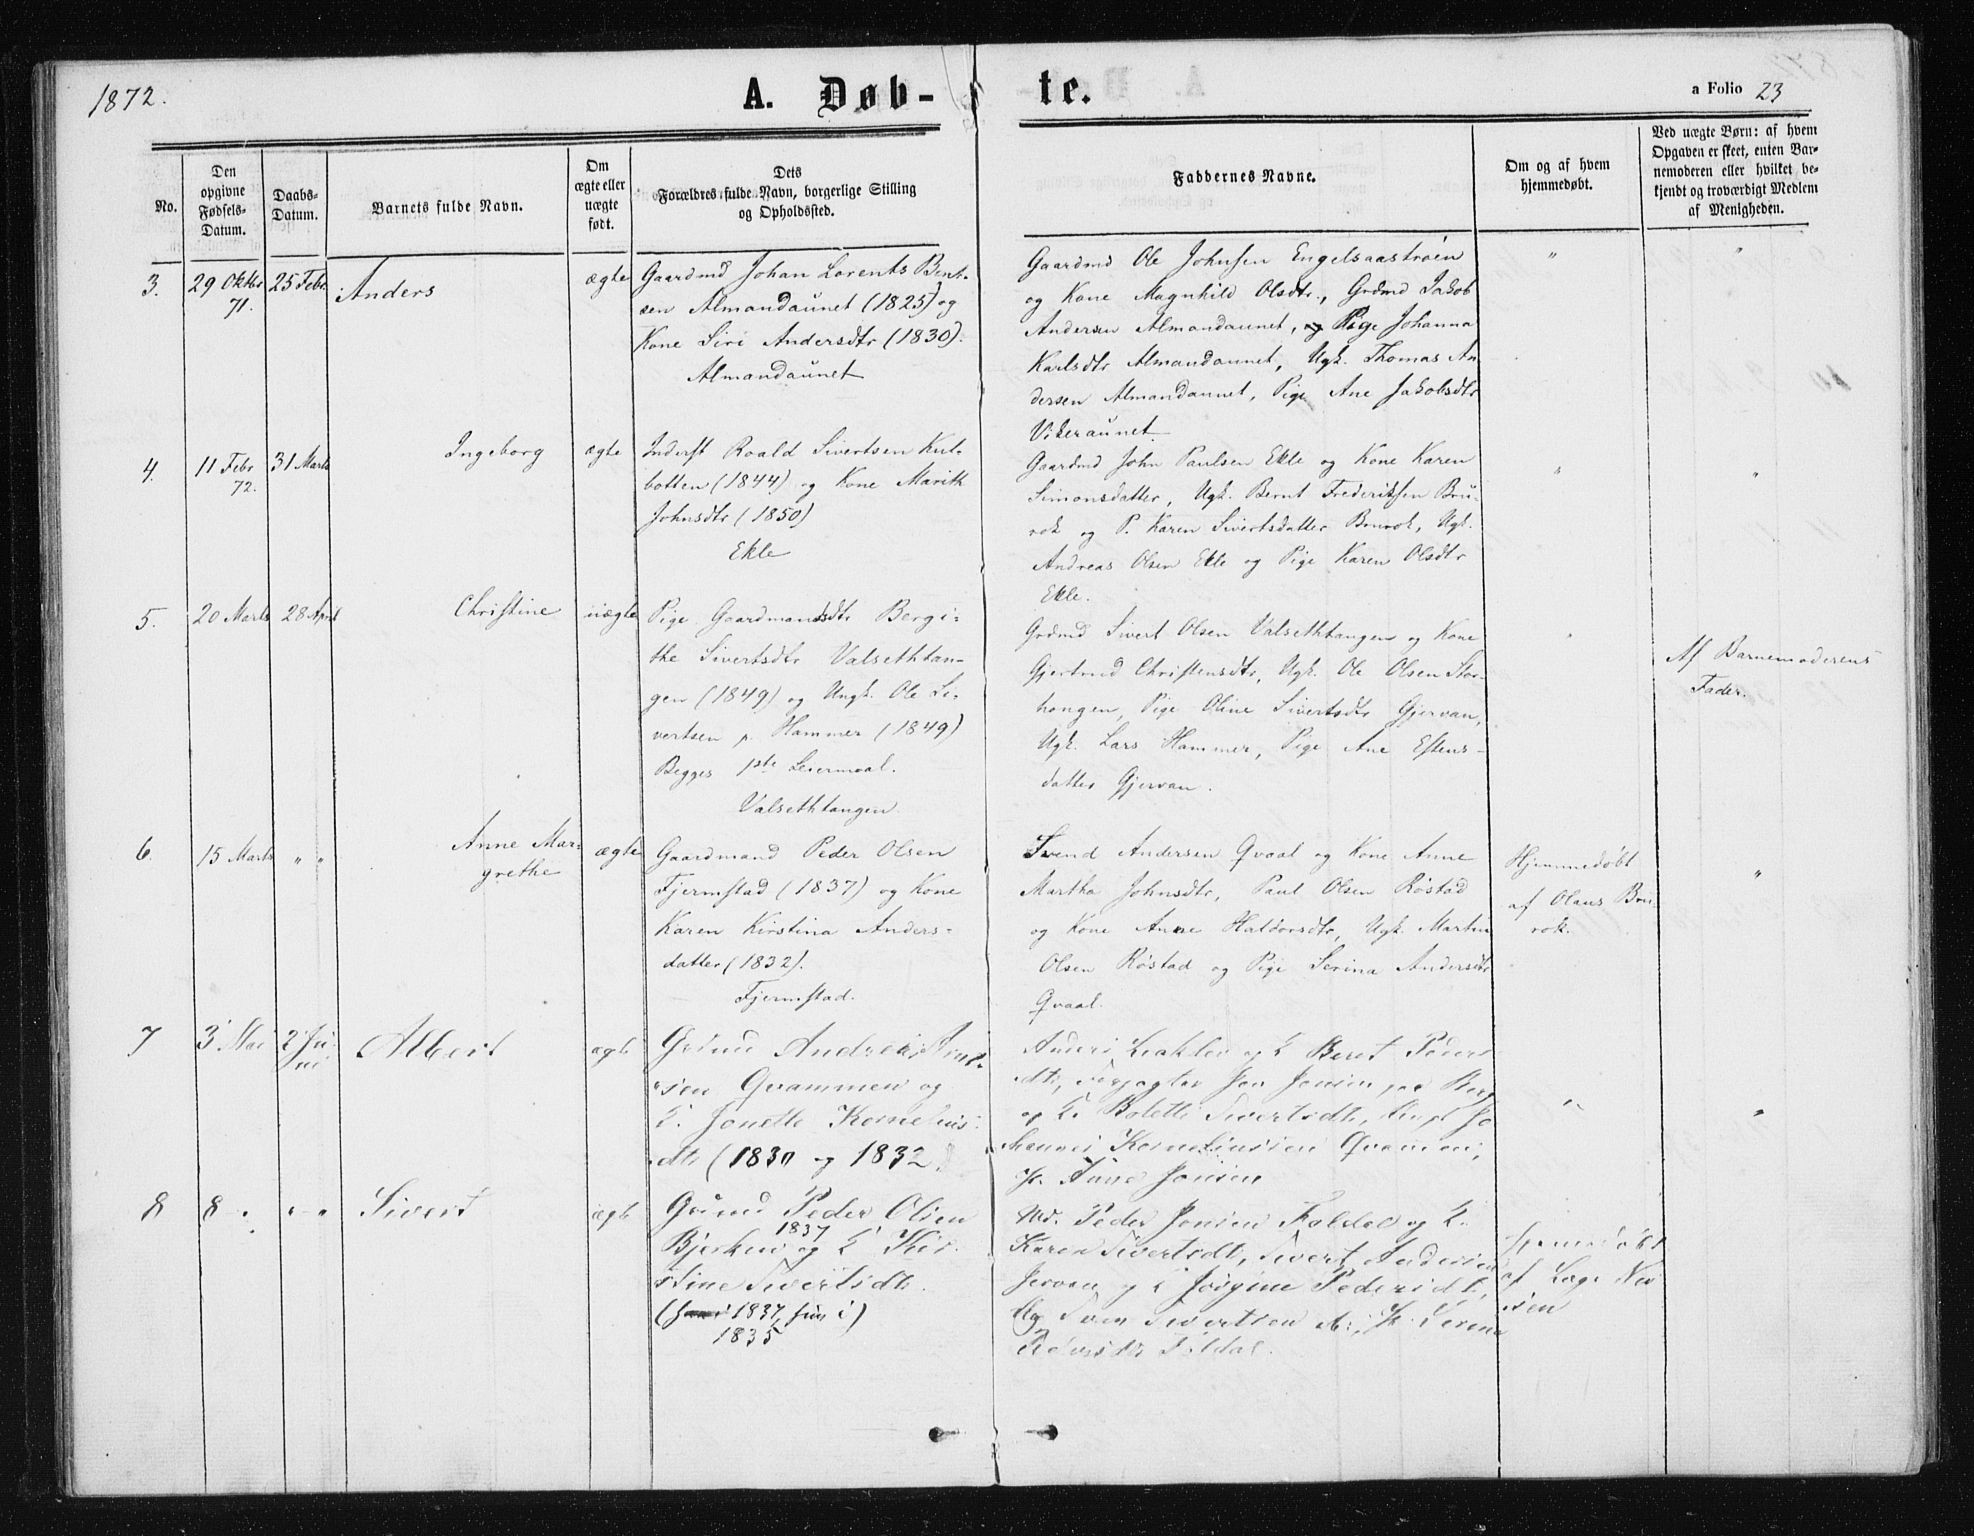 1872.
A. Døb-
te.
a Folio 23
No.
Den
opgivne
Fødsels-
Datum.
Daabs-
Datum.
Barnets fulde Navn.
Om
ægte eller
uægte
født.
Dets
Forældres fulde Navn, borgerlige Stilling
og Opholdssted.
Faddernes Navne.
Om og af hvem
hjemmedøbt.
Ved uægte Børn: af hvem
Opgaven er skeet, enten Bar-
nemoderen eller hvilket be-
kjendt og troværdigt Medlem
af Menigheden.
3.
29 Oktbr
71.
25 Febr.
Anders
ægte
Gaardmd Johan Lorents Bent-
sen Almandaunet (1825) og
Kone Siri Andersdtr (1830).
Almandaunet
Gaardmd Ole Johnsen Engelsaastrøen
og Kone Magnhild Olsdtr., Grdmd Jakob
Andersen Almandaunet, og Pige Johanna
Karlsdtr Almandaunet, Ugk. Thomas An
dersen Almandaunet, Pige Ane Jakobsdtr
Vikeraunet.
"
"
4.
11 Febr
72.
31 Marts
Ingeborg
ægte
Inderst Roald Sivertsen Kul-
botten (1844) og Kone Marith
Johnsdtr (1850)
Ekle
Gaardmd John Paulsen Ekle og Kone Karen
Simonsdatter, Ugk. Bernt Frederiksen Bru-
rok og P. Karen Sivertsdatter Brurok, Ugk.
Andreas Olsen Ekle og Pige Karen Olsdtr
Ekle.
"
"
5.
20 Marts
28 April
Christine
uægte
Pige Gaardmandsdtr Bergi-
the Sivertsdtr Valsethtan-
gen (1849) og Ungk. Ole Si-
vertsen p. Hammer (1849)
Begges 1ste Leiermaal.
Valsethtangen
Grdmd Sivert Olsen Valsethtangen og Kone
Gjertrud Christensdtr, Ugk. Ole Olsen Stor-
haugen, Pige Oline Sivertsdtr Gjervan,
Ugk. Lars Hammer, Pige Ane Estens-
datter Gjervan.
"
Af Barnemoderens
Fader.
6.
15 Marts
" "
Anne Mar-
grethe
ægte
Gaardmand Peder Olsen
Fjermstad (1837) og Kone
Karen Kirstina Anders-
datter (1832).
Fjermstad.
Svend Andersen Qvaal og Kone Anne
Martha Johnsdtr, Paul Olsen Røstad
og Kone Anne Haldorsdtr, Ugk. Martin
Olsen Røstad og Pige Serina Andersdtr
Qvaal.
Hjemmedøbt
af Olaus Bru-
rok.
"
7
3 Mai
2 Ju-
ni
Albert
ægte
Grdmd Andreas
sen Qvammen og
K. Jonette Kornelius-
dtr (1830 og 1832)
Anders og K Beret Peders
dtr, Jon Jonsen paa Berg
og K. Bolette Sivertsdtr, Ungk Jo
hannes Korneliussen Qvammen,
P. Anne Jonsen
"
"
8
8 "
" "
Sivert
ægte
Grdmd Peder Olsen
1837
Bjerken og K Kir-
stine Sivertsdtr.
1837, Juni)
1835
Md. Peder Jonsen Foldal og K.
Karen Sivertsdtr, Sivert Andersen
Jervan og K Jørgine Pedersdtr,
Ug Sven Sivertsen
Pedersdtr
Hjemmedøbt
af Lage Nils
sen